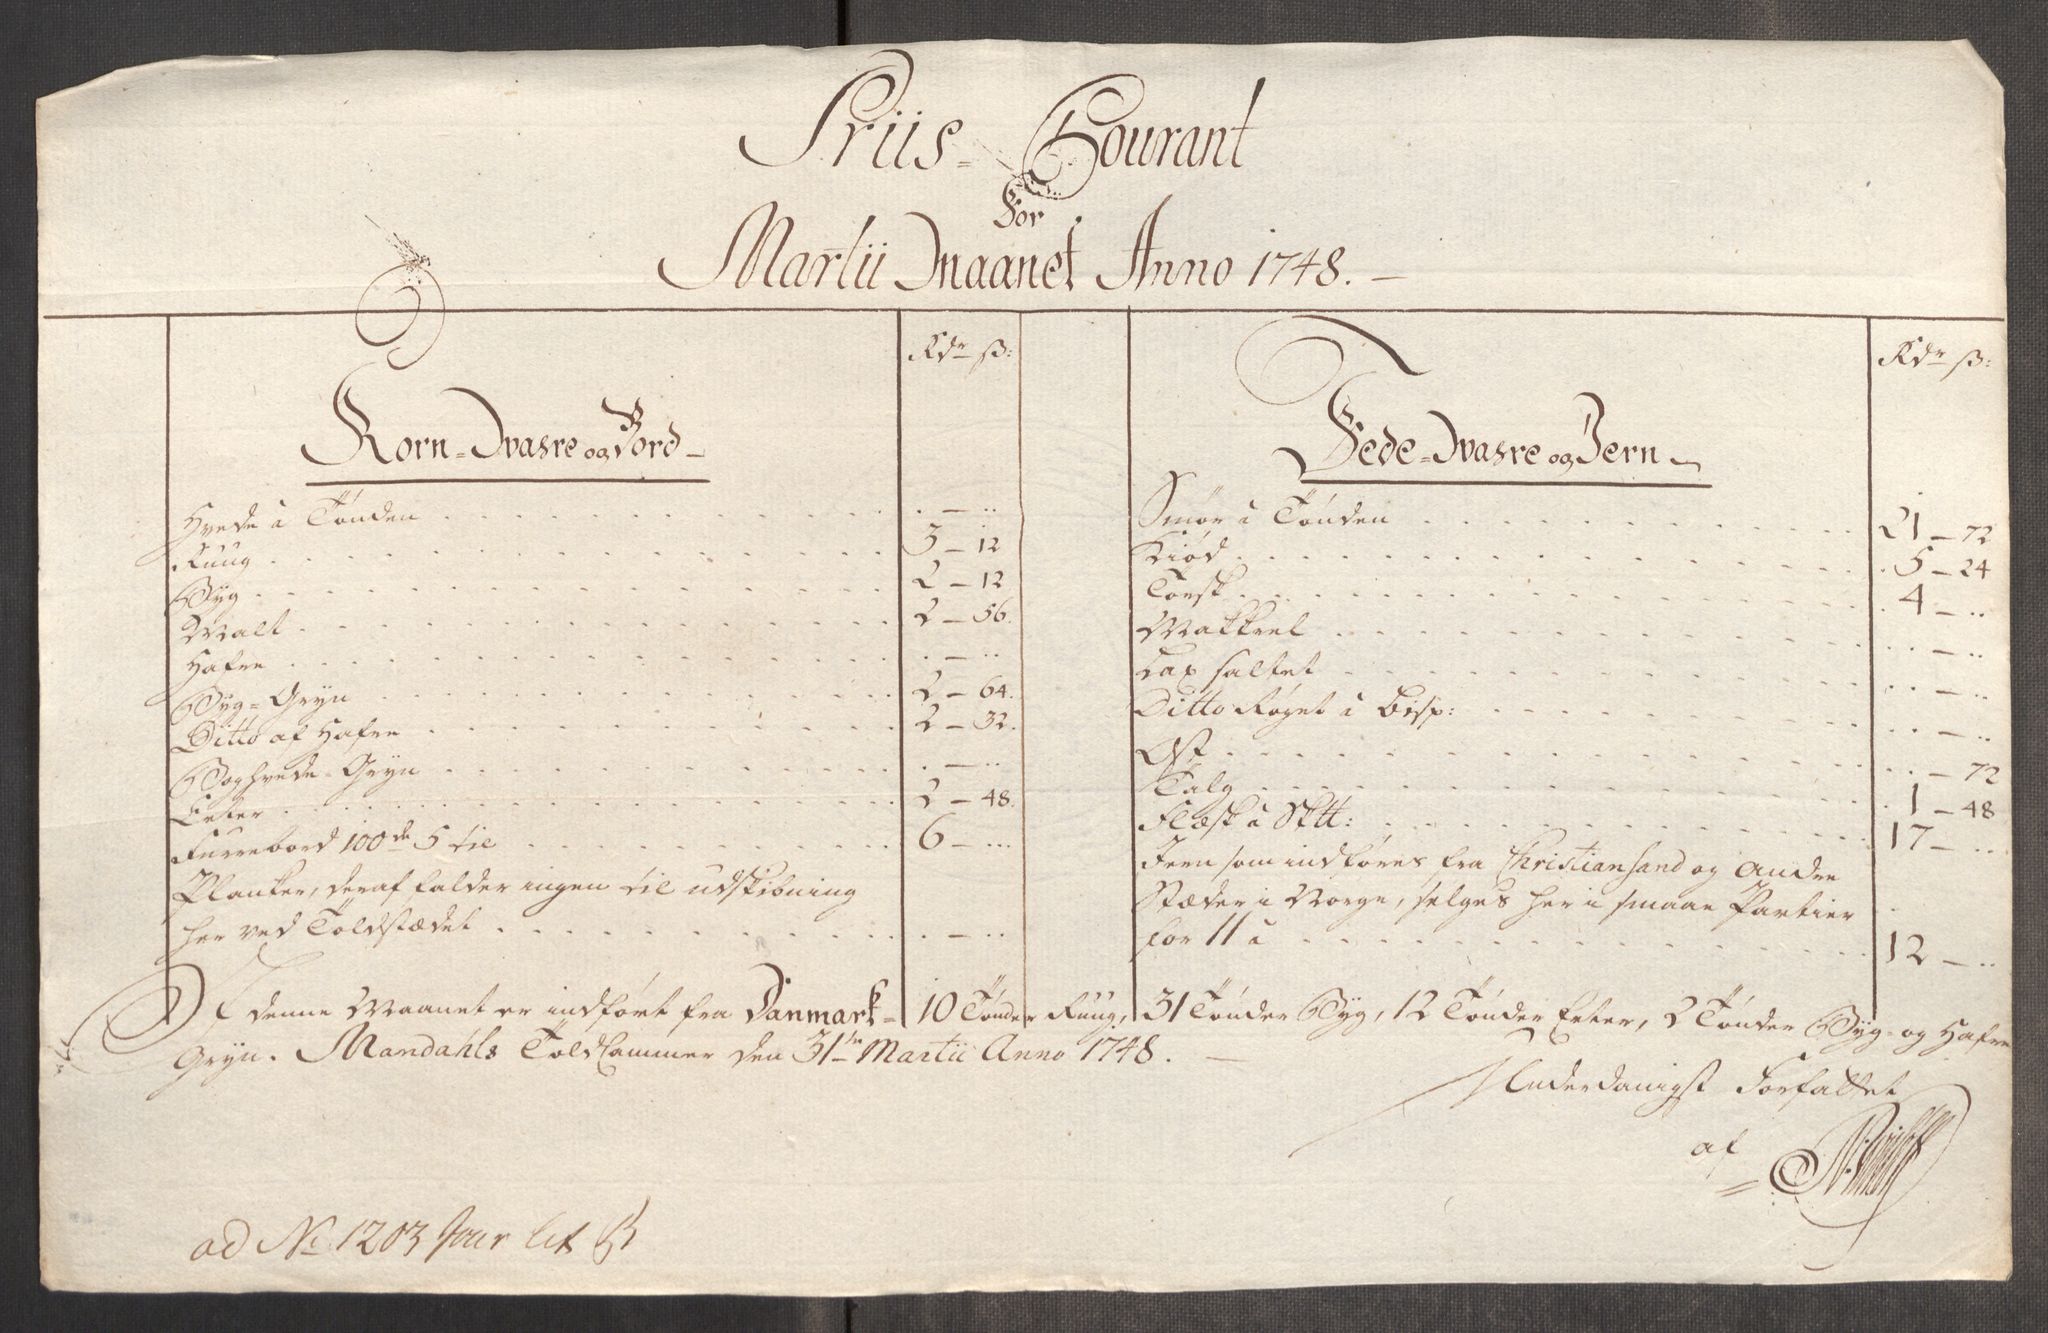 Priis-Courant
For
Martii Maanet Anno 1748.
Rdr ß:
Korn-Vahre og Bord
Hvede a Tønden . - ..
Ruug 3 - 12
Byg 2 - 12
Malt 2 - 56.
Hafre . - ..
Byg-Gryn 2 - 64.
Ditto af Hafre 2 - 32.
Boghvede-Gryn . - ..
Erter 2 - 48.
Furrebord 100de 5 til 6 - ...
Planker, deraf falder ingen til udskibning
her ved Toldstædet . - ..
Rdr ß:
Fede-Vahre og Jern
Smør a Tønden 21 - 72
Kiød 5 - 24
Torsk 4 - ..
Makkrel . - ..
Lax saltet . - ..
Ditto Røget a Bisp: . - ..
Ost . - 72
Talg 1 - 48
Flæsk a Sktt: 17 - ..
Jern som indføres fra Christiansand og andre
Stæder i Norge, selges her i smaae Partier
for 11 a 12 - ..
I denne Maanet er indført fra Danmark 10 Tønder Ruug, 31 Tønder Byg, 12 Tønder Erter, 2 Tønder Byg- og Hafre
Gryn. Mandahls Toldkammer den 31te Martii Anno 1748.
Underdanigst Forfattet
af
ad No 1203 Jour lit B